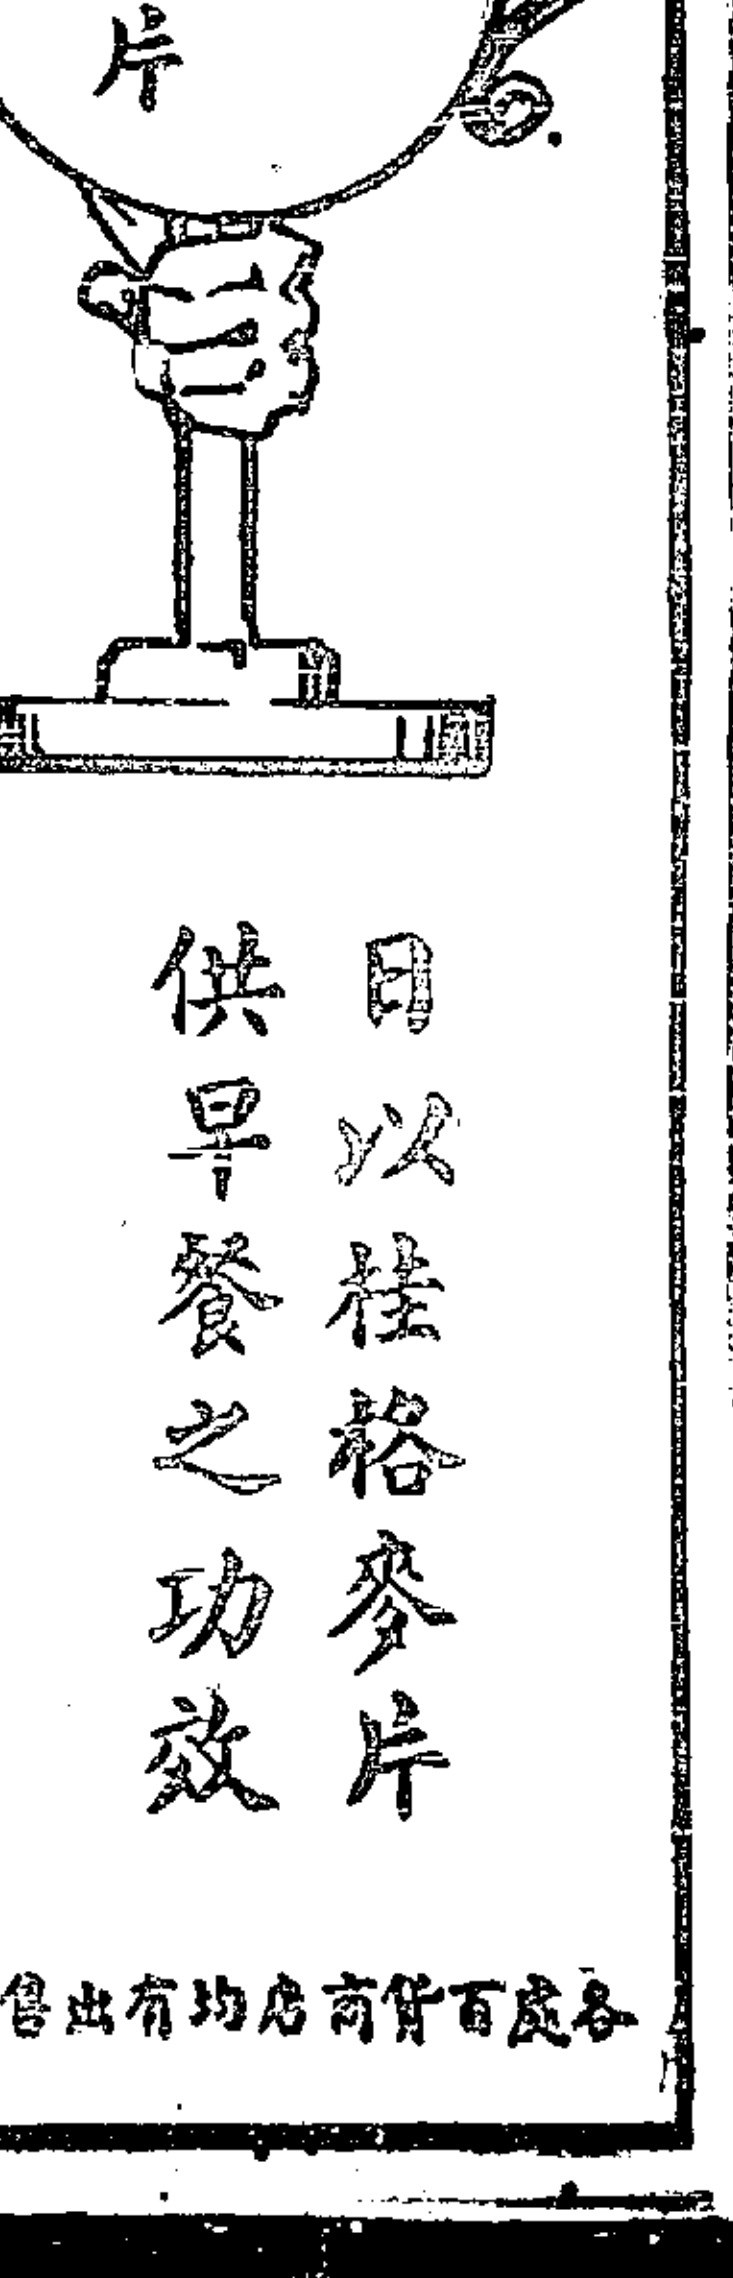 片
日以桂格麥片
供早餐之功效
各處百貨商店均有出售